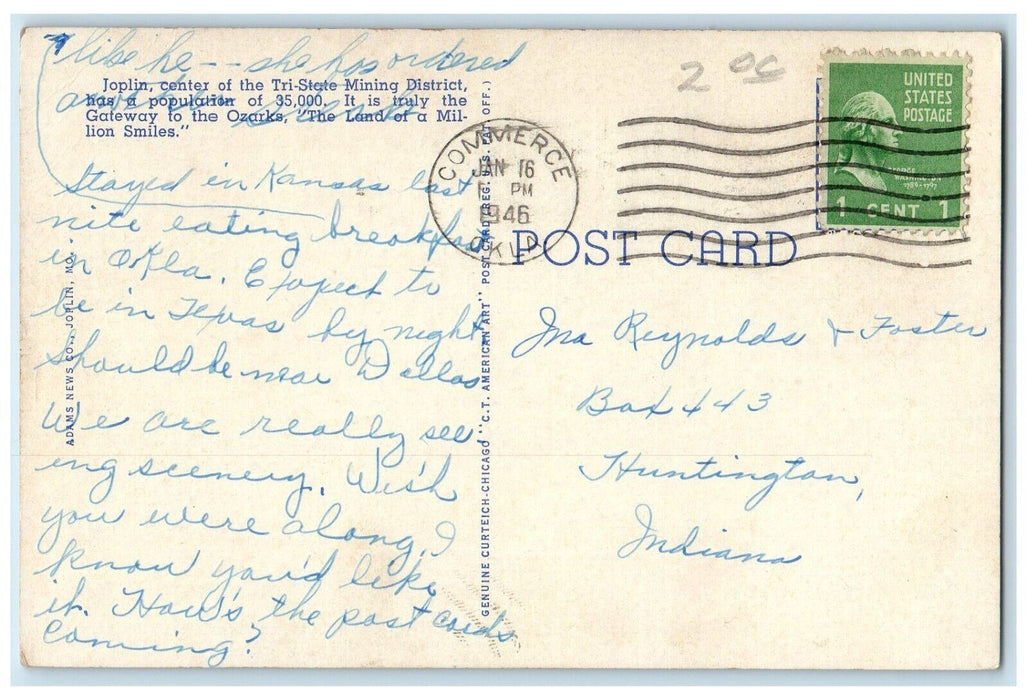 like he -- she has ordered
Joplin, center of the Tri-State Mining District,
has a population of 35,000. It is truly the
Gateway to the Ozarks, "The Land of a Mil-
lion Smiles."
Stayed in Kansas last
nite eating breakfast
in Okla. Expect to
be in Texas by night
Should be near Dallas
We are really see-
ing scenery. Wish
you were along. I
know you'd like
it. How's the post cards
coming?
ADAMS NEWS CO., JOPLIN, MO.
GENUINE CURTEICH-CHICAGO "C.T. AMERICAN ART" POST CARD (REG. U.S. PAT. OFF.)
2 00
COMMERCE
JAN 16
PM
1946
OKLA
UNITED
STATES
POSTAGE
GEORGE
WASHINGTON
1789-1797
1 CENT 1
POST CARD
Ina Reynolds & Foster
Box 443
Huntington,
Indiana